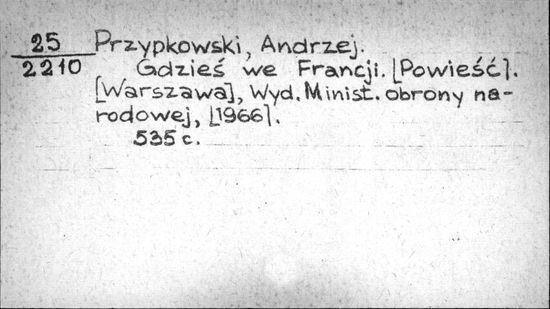 25 Przypkowski, Andrzej.
2210 Gdzieś we Francji. [Powieść].
[Warszawa], Wyd. Minist. obrony na-
rodowej, [1966].
535 c.